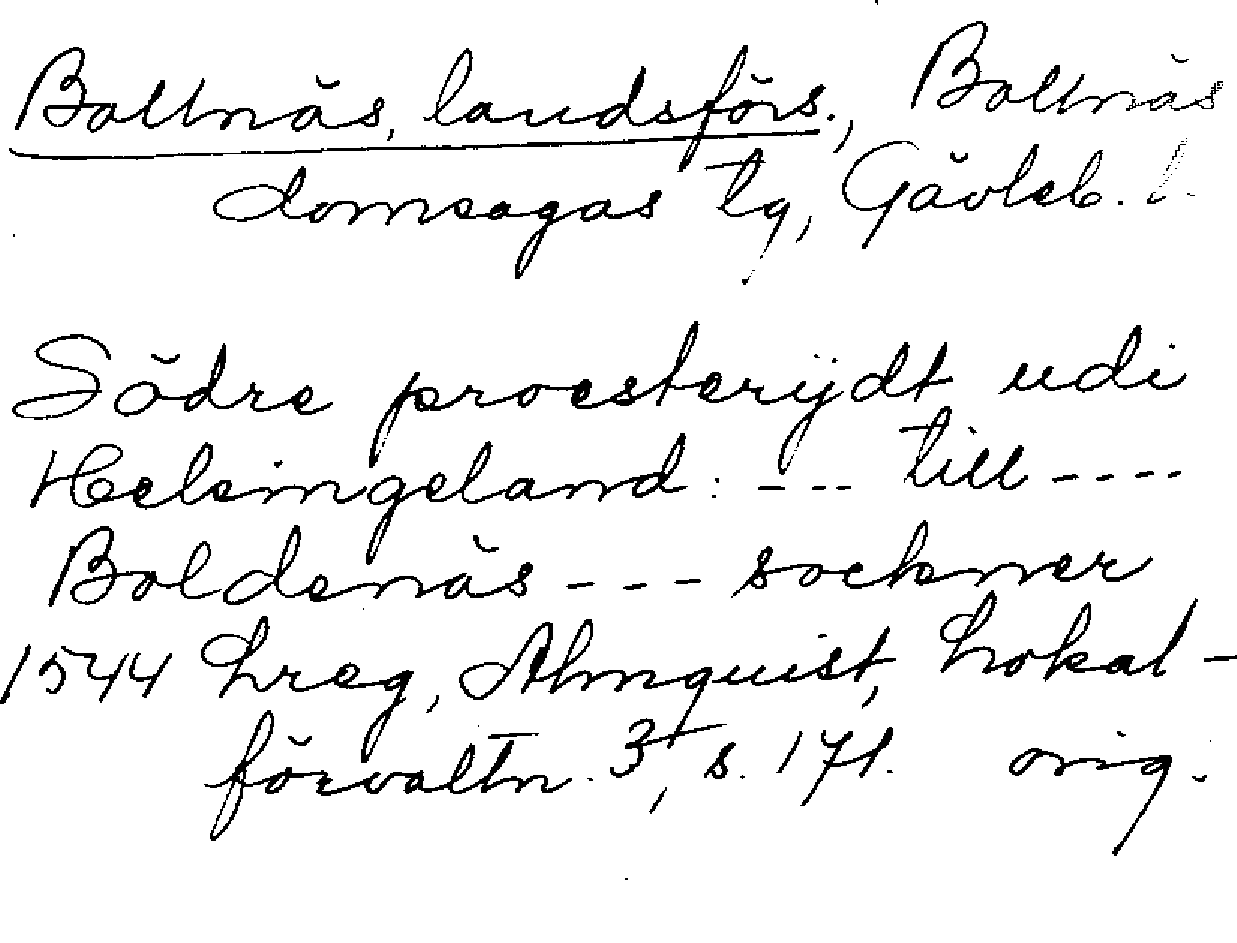 Bollnäs, landsförs., Bollnäs
domsagas tg, Gävleb. l.
Södre proesterijdt udi
Helsingeland: --- till ----
Boldenäs --- sockner
1544 Lreg, Almquist, Lokal-
förvaltn. 3, s. 171. orig.